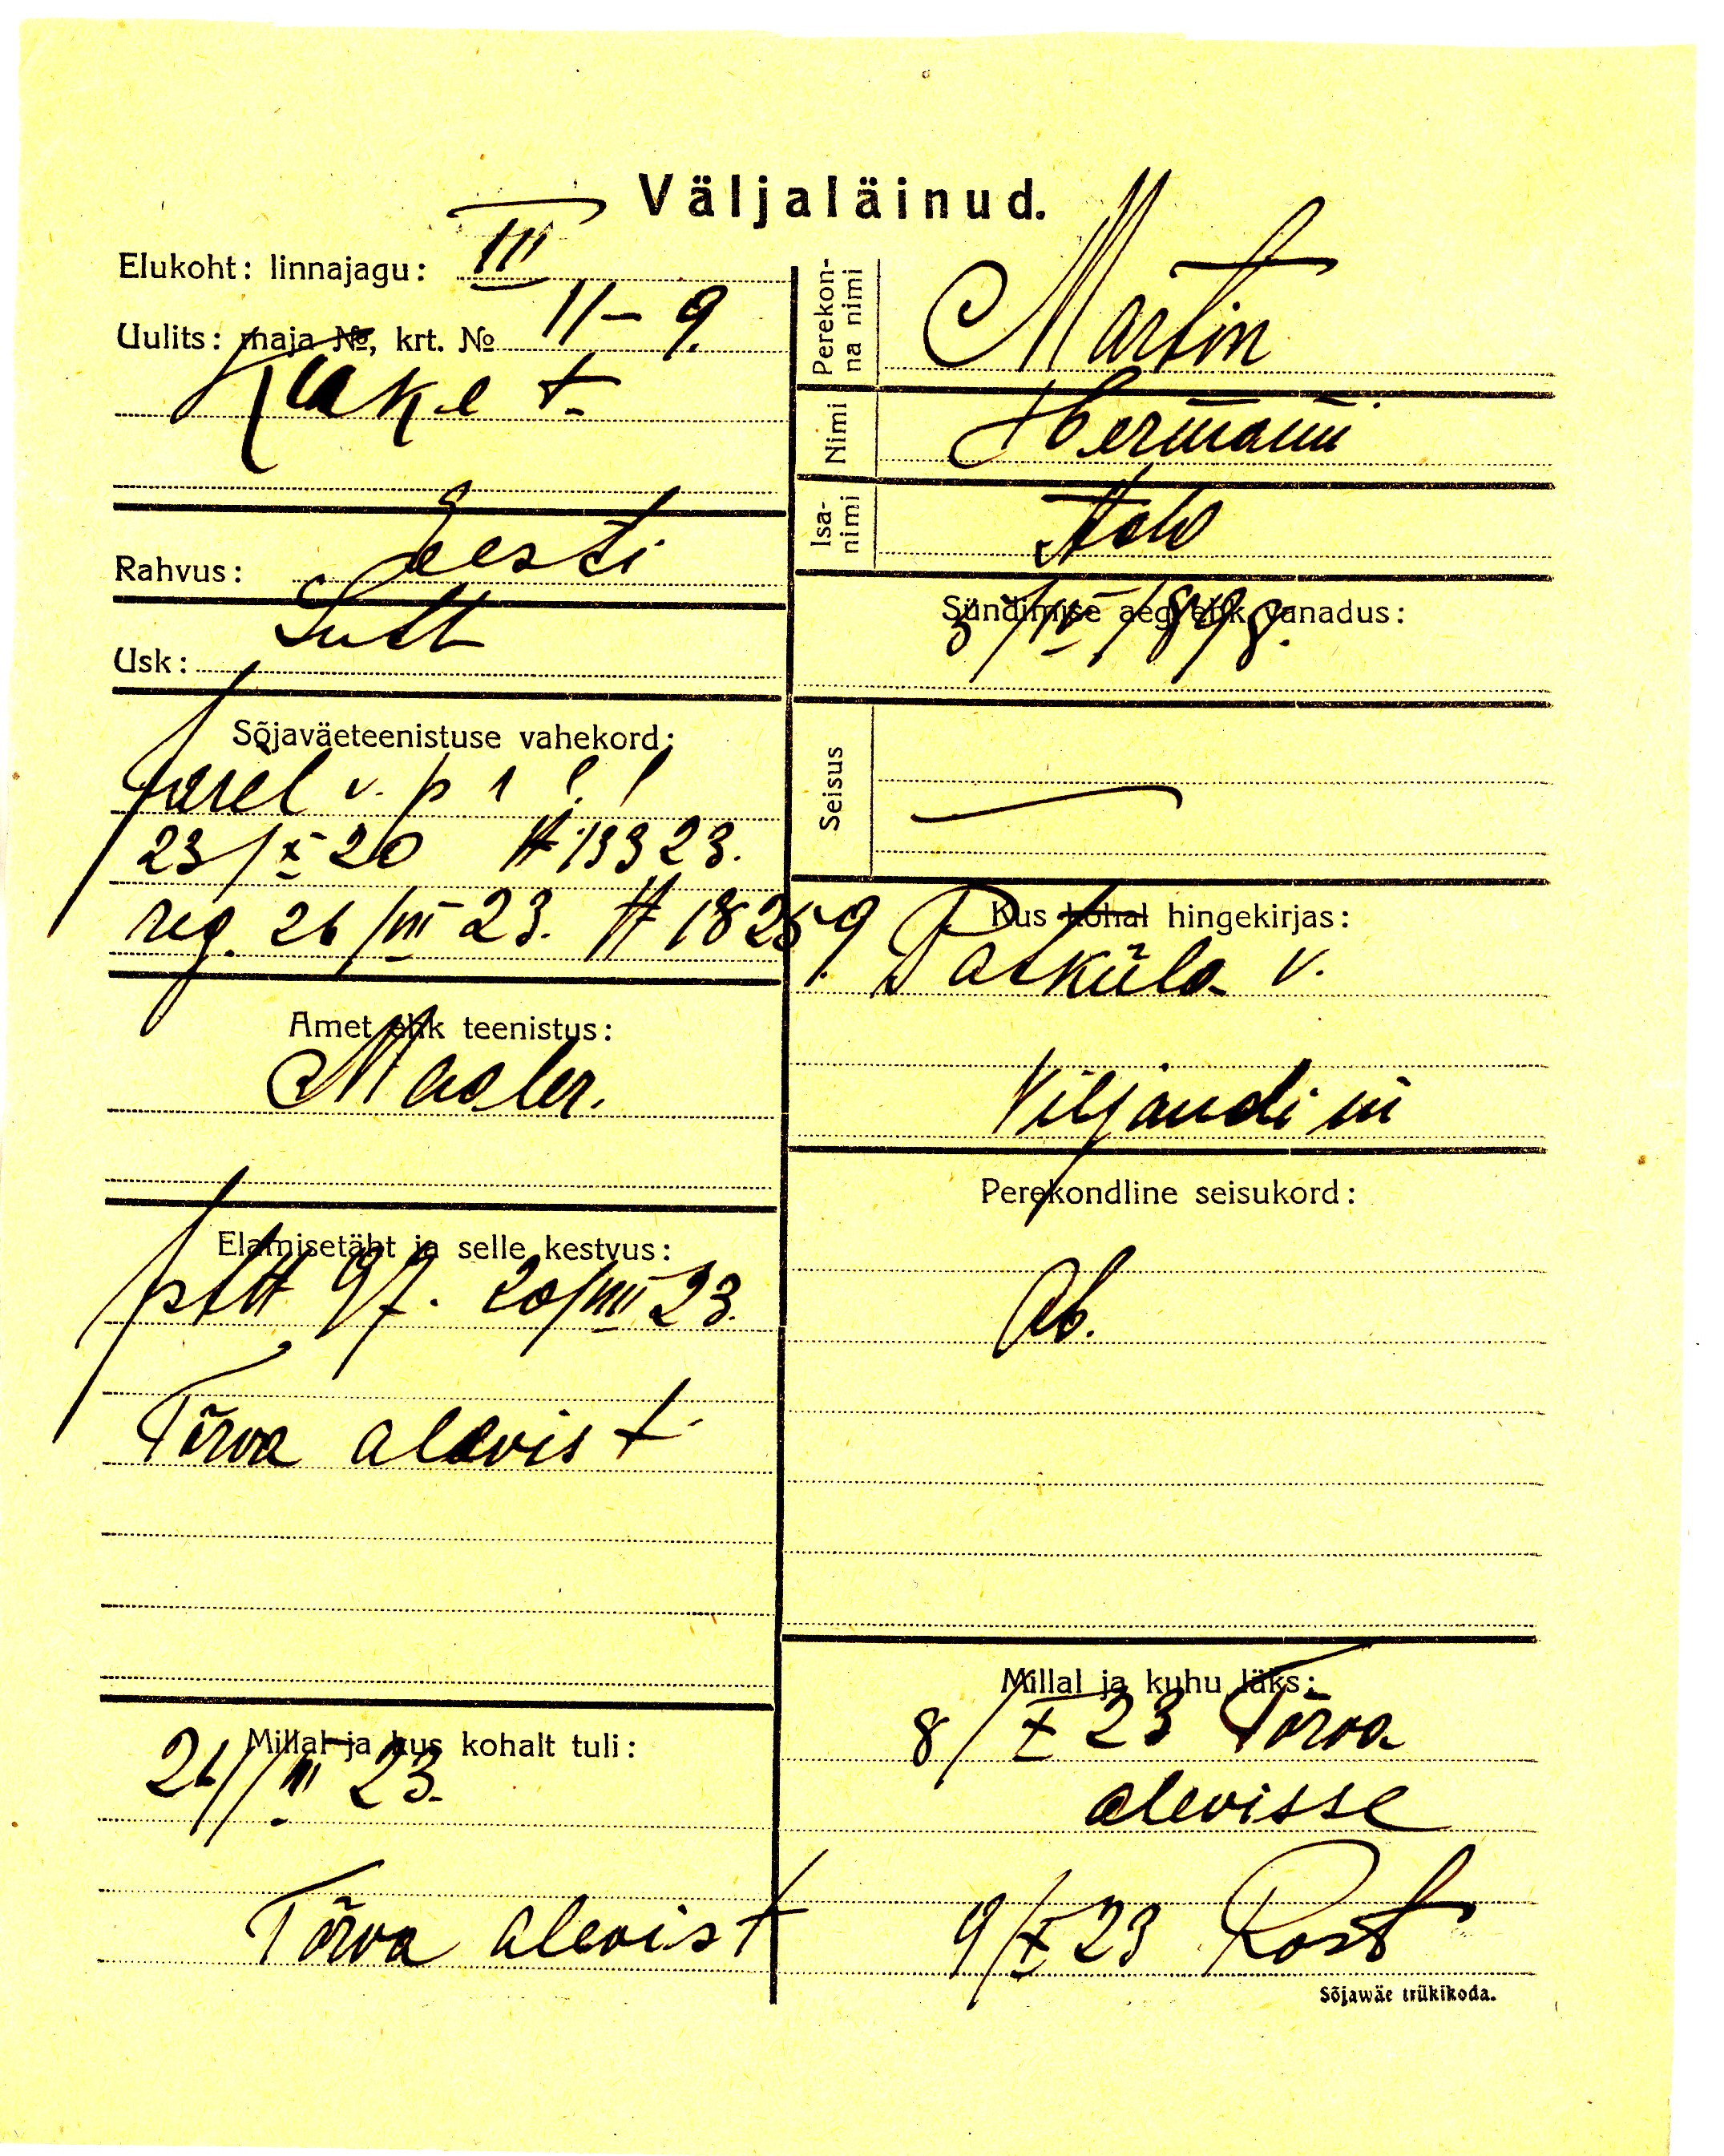 Väljaläinud.
Elukoht: linnajagu: III
Uulits: maja №, krt. № 11-9.
Rahvus: Eesti
Usk: Luth
Sõjaväeteenistuse vahekord:
v. p 1
23/X 20 № 13323.
reg. 26/III 23. № 18259.
Amet ehk teenistus:
Maaler.
Elamisetäht ja selle kestvus:
97. 20/VIII 23.
Tõrva alevist
Millal ja kus kohalt tuli:
26/III 23.
Tõrva alevist
Perekonna nimi Martin
Nimi Hermann
Isanimi
Sündimise aeg ehk vanadus:
3/IV 1898.
Seisus
Kus kohal hingekirjas:
Patküla v.
Viljandi m
Perekondline seisukord:
Ab.
Millal ja kuhu läks:
8/X 23 Tõrva
alevisse
9/X 23 Rost
Sõjawäe trükikoda.